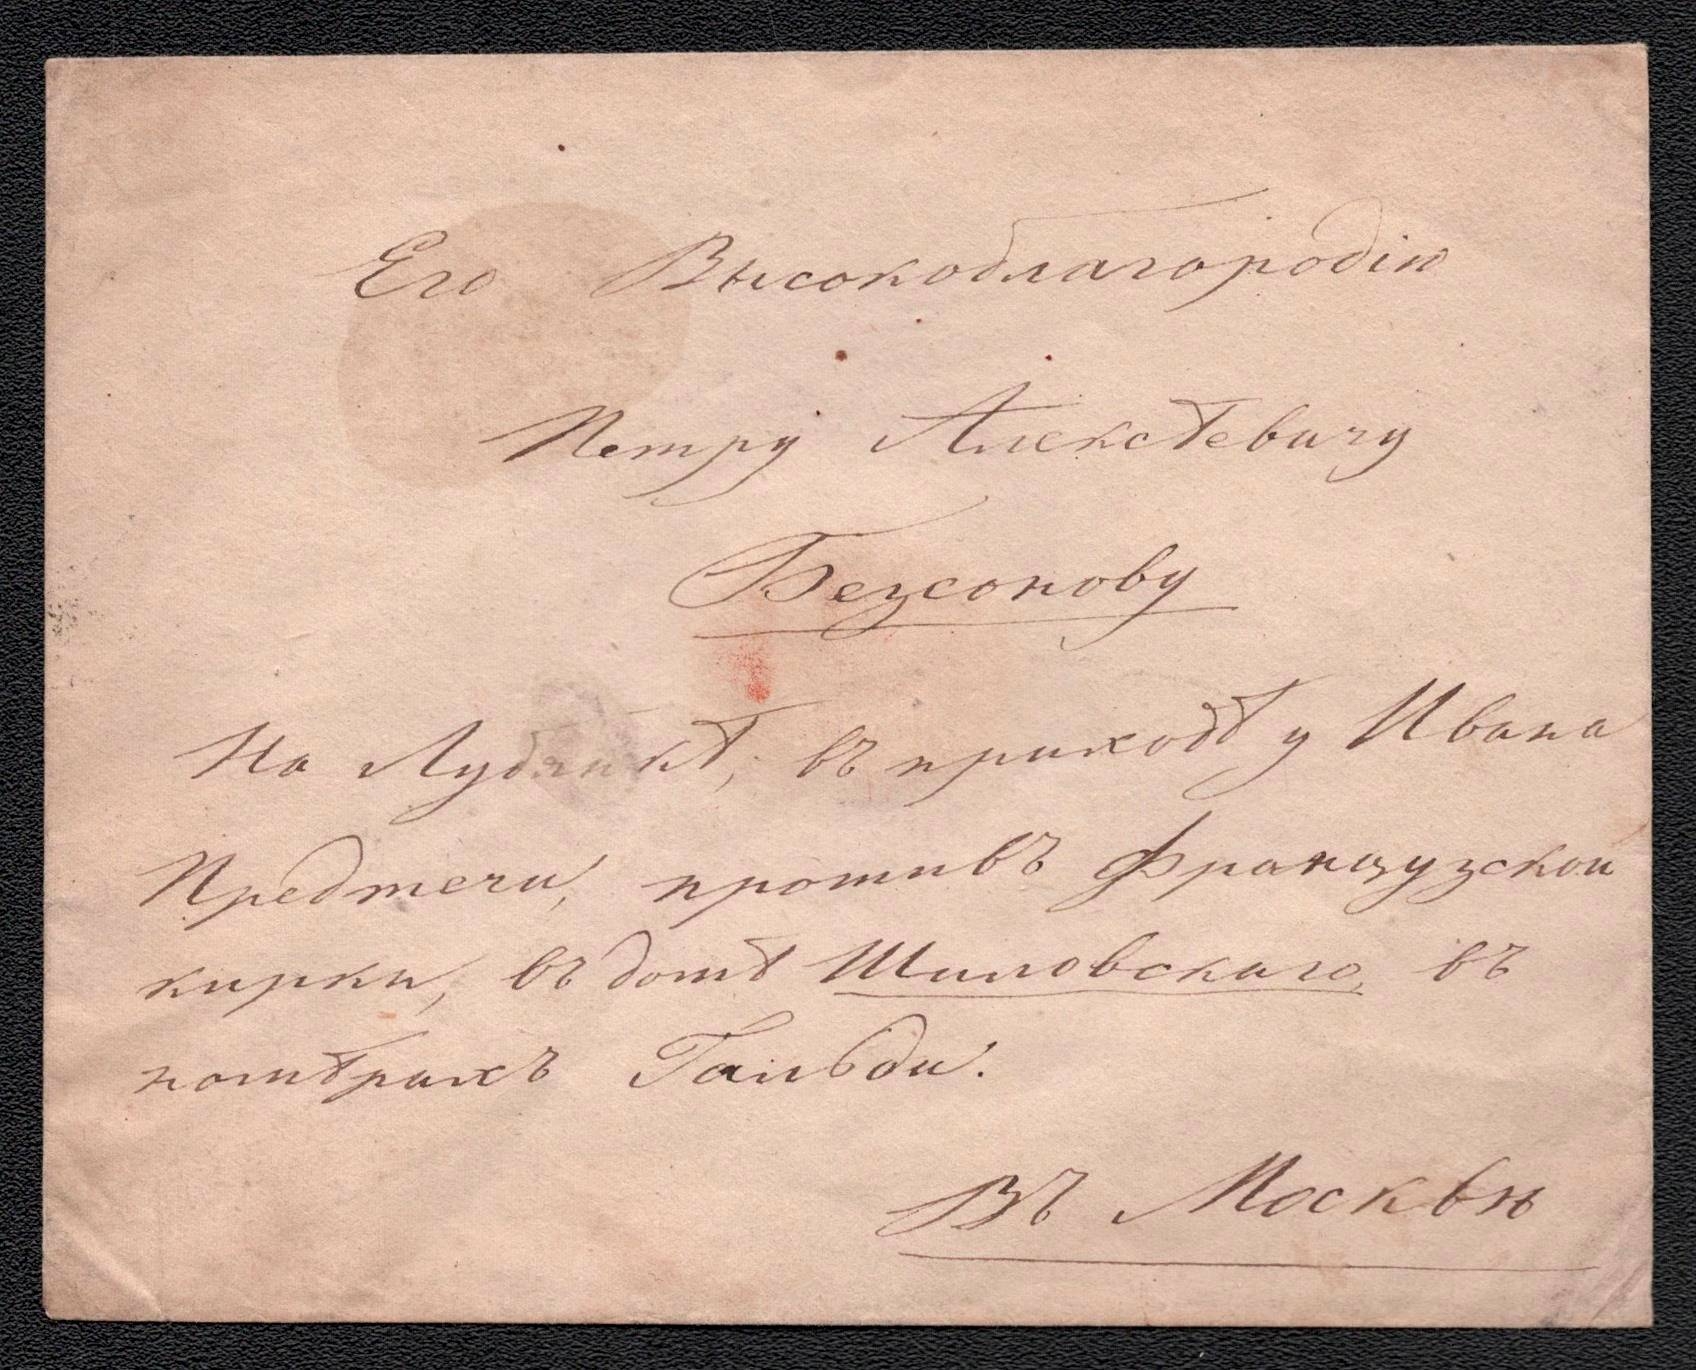 Его Высокоблагородію
Петру Алексѣевичу
Безсонову
На Лубянкѣ, въ приходѣ у Ивана
Предтечи, противъ Французской
кирки, въ домѣ Шиловскаго, въ
номѣрахъ Гальди.
Въ Москвѣ